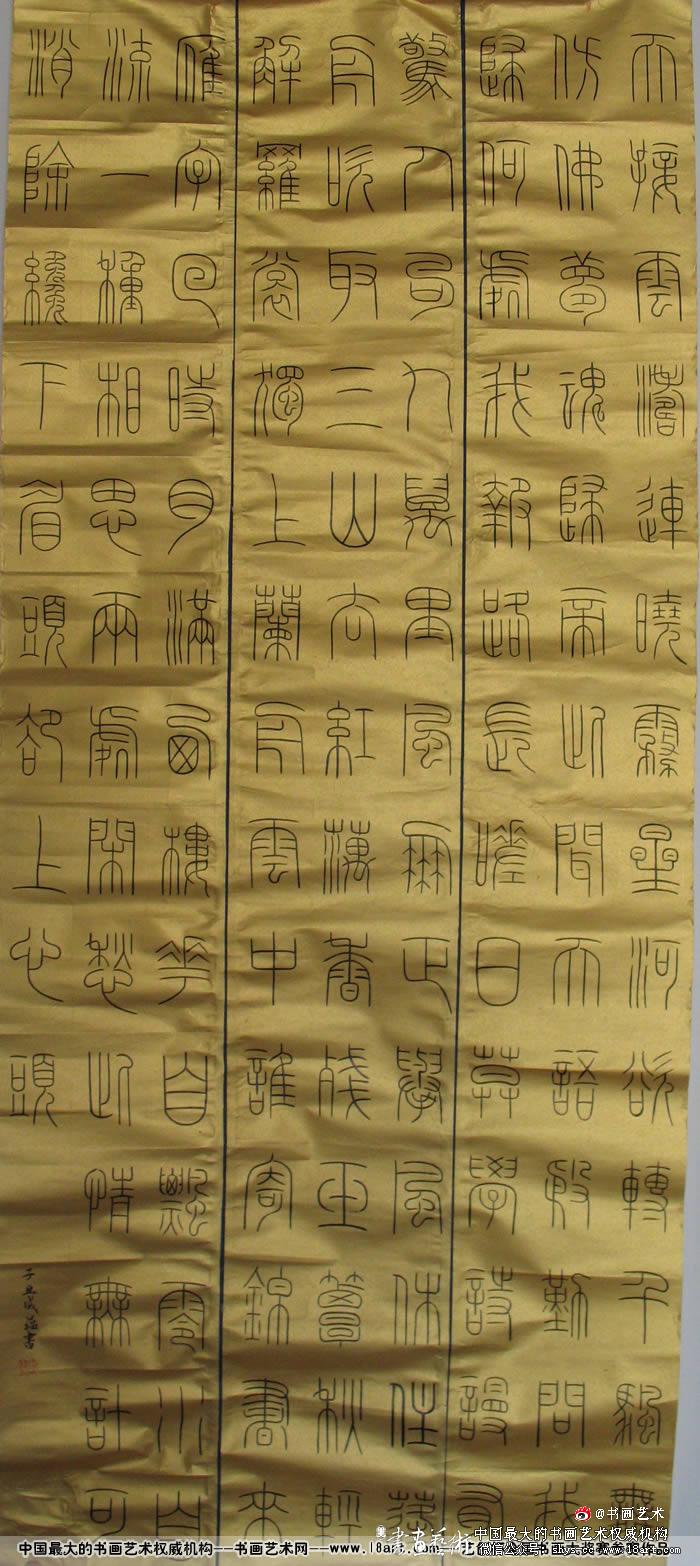 天接雲濤連曉霧星河欲轉千帆舞
仿佛夢魂歸帝所聞天語殷勤問我
歸何處我報路長嗟日暮學詩謾有
驚人句九萬里風鵬正舉風休住蓬
舟吹取三山去紅藕香殘玉簟秋輕
解羅裳獨上蘭舟雲中誰寄錦書來
雁字回時月滿西樓花自飄零水自
流一種相思兩處閒愁此情無計可
消除纔下眉頭卻上心頭
@书画艺术
中国最大的书画艺术权威机构
中国最大的书画艺术权威机构---书画艺术网---www.18art.com